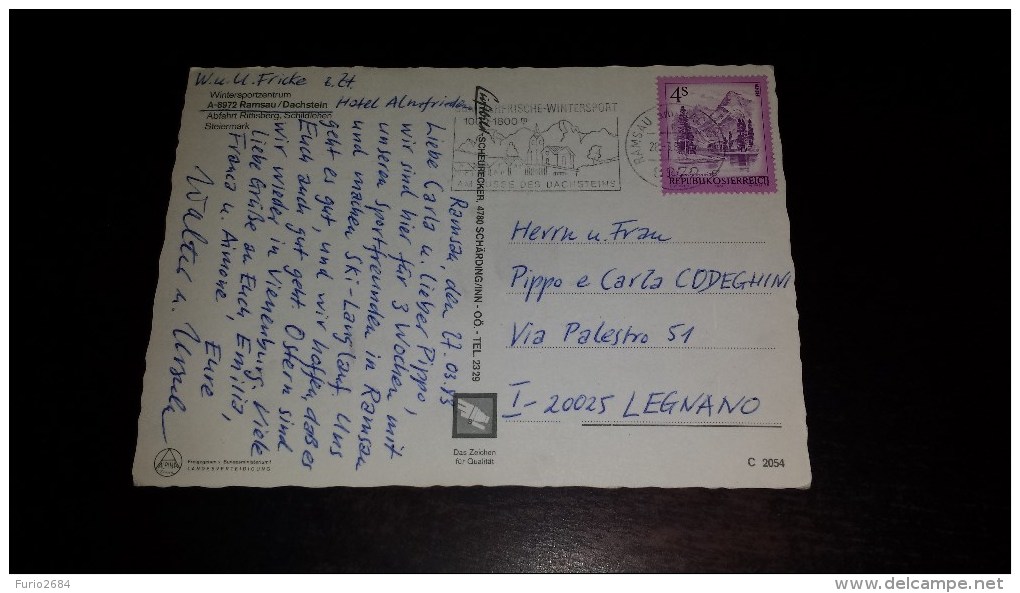 W. u. U. Fricke z. Zt.
Wintersportzentrum
A-8972 Ramsau/Dachstein
Hotel Almfrieden
Abfahrt Rittisberg, Schildlehen
Steiermark
Ramsau, den 27.03.83
Liebe Carla u. lieber Pippo,
wir sind hier für 3 Wochen mit
unseren Sportfreunden in Ramsau
und machen Ski-Langlauf. Uns
geht es gut, und wir hoffen, daß es
Euch auch gut geht. Ostern sind
wir wieder in Vienenburg. Viele
liebe Grüße an Euch, Emilia,
Franca u. Aimone, Eure
Walter u. Ursula
SCHEURECKER, 4780 SCHÄRDING/INN - OÖ. - TEL. 2329
WINTERSPORT
1800 m
DES DACHSTEINS
RAMSAU
4S
REPUBLIK ÖSTERREICH
Herrn u. Frau
Pippo e Carla CODEGHINI
Via Palestro 51
I-20025 LEGNANO
Das Zeichen
für Qualität
C 2054
LANDESVERTEIDIGUNG
Furio2684
delcampe.net